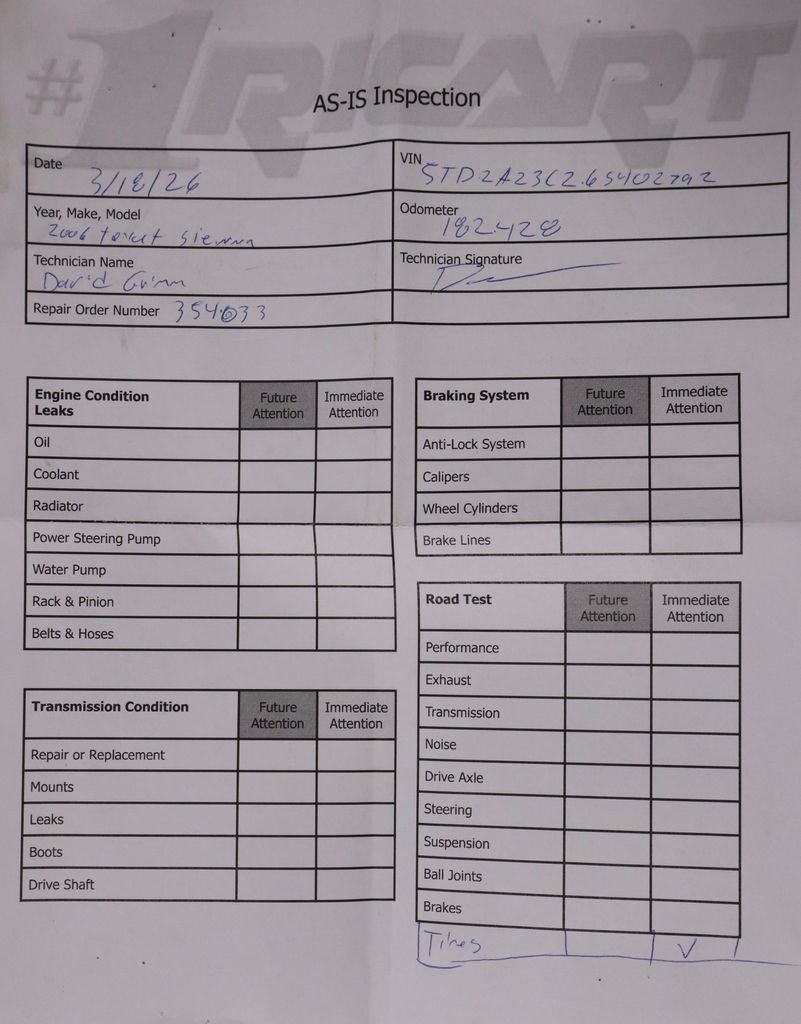 #1 RICART
AS-IS Inspection
Date 3/18/26
VIN 5TDZA23C26S402792
Year, Make, Model 2006 Sienna
Odometer 182428
Technician Name David
Technician Signature
Repair Order Number 354033
Engine Condition Leaks Future Attention Immediate Attention
Oil
Coolant
Radiator
Power Steering Pump
Water Pump
Rack & Pinion
Belts & Hoses
Transmission Condition Future Attention Immediate Attention
Repair or Replacement
Mounts
Leaks
Boots
Drive Shaft
Braking System Future Attention Immediate Attention
Anti-Lock System
Calipers
Wheel Cylinders
Brake Lines
Road Test Future Attention Immediate Attention
Performance
Exhaust
Transmission
Noise
Drive Axle
Steering
Suspension
Ball Joints
Brakes
Tires ✓